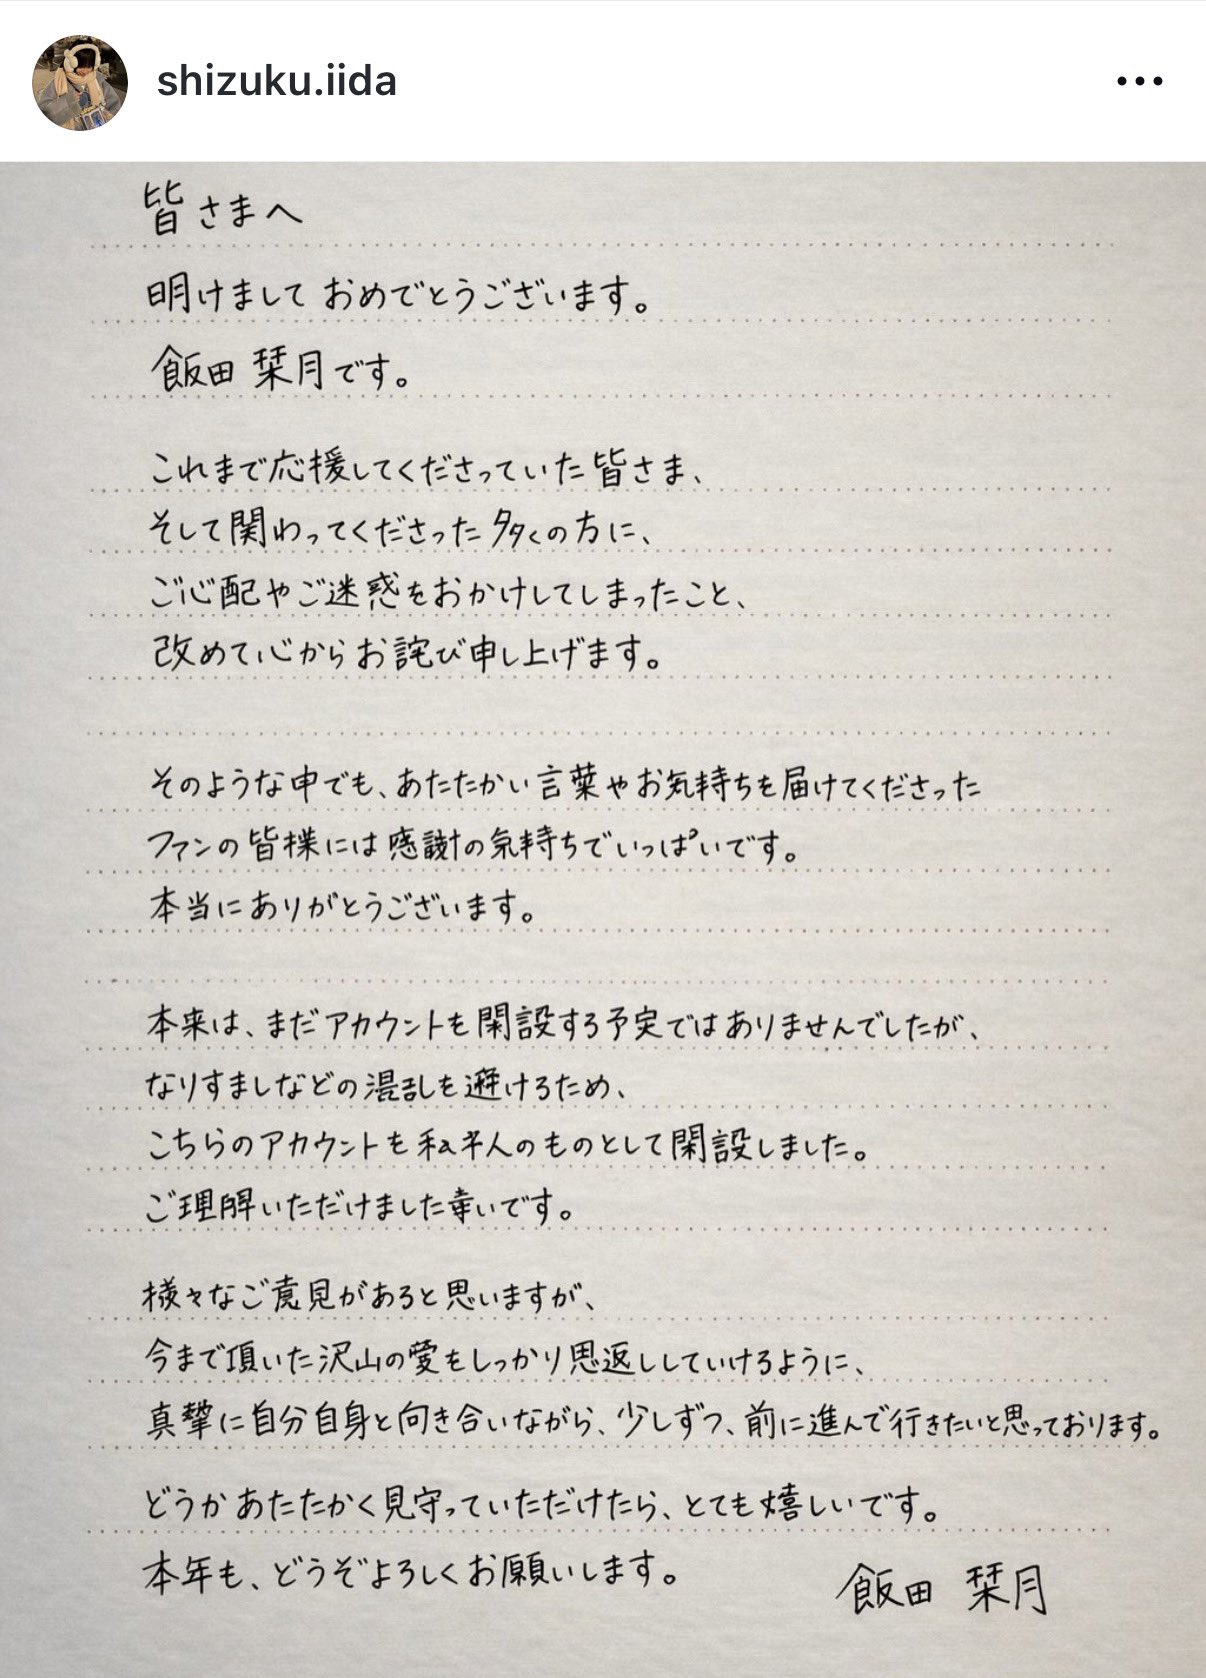 shizuku.iida
皆さまへ
明けまして おめでとうございます。
飯田 栞月です。
これまで応援してくださっていた皆さま、
そして関わってくださった多くの方に、
ご心配やご迷惑をおかけしてしまったこと、
改めて心からお詫び申し上げます。
そのような中でも、あたたかい言葉やお気持ちを届けてくださった
ファンの皆様には感謝の気持ちでいっぱいです。
本当にありがとうございます。
本来は、まだアカウントを開設する予定ではありませんでしたが、
なりすましなどの混乱を避けるため、
こちらのアカウントを私本人のものとして開設しました。
ご理解いただけました幸いです。
様々なご意見があると思いますが、
今まで頂いた沢山の愛をしっかり恩返ししていけるように、
真摯に自分自身と向き合いながら、少しずつ、前に進んで行きたいと思っております。
どうかあたたかく見守っていただけたら、とても嬉しいです。
本年も、どうぞよろしくお願いします。
飯田 栞月